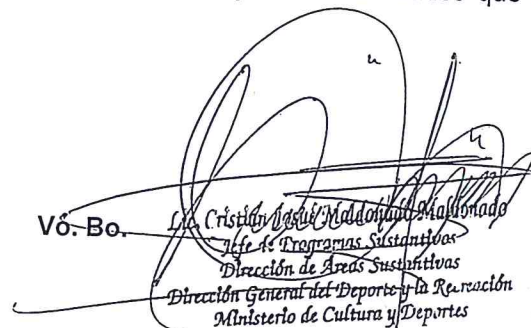 que
Vo. Bo.
Lic. Cristian Josué Maldonado Maldonado
Jefe de Programas Sustantivos
Dirección de Áreas Sustantivas
Dirección General del Deporte y la Recreación
Ministerio de Cultura y Deportes